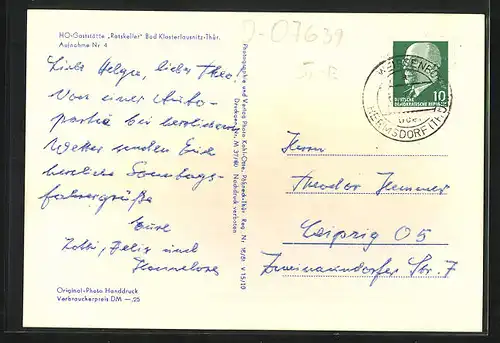 HO-Gaststätte „Ratskeller" Bad Klosterlausnitz-Thür.
Aufnahme Nr 4
Liebe Helga, lieber Theo!
Von einer Auto-
partie bei herrlichem
Wetter senden Euch
herzliche Sonntags-
fahrergrüße
Eure
Lotti, Felix und
Hannelore
Original-Photo Handdruck
Verbraucherpreis DM —.25
Photographie und Verlag Photo Kahl-Ohn, Pößneck-Thür. Reg. Nr.
Nachdruck verboten
V 15/19
J-07639
10
DEUTSCHE
DEMOKRATISCHE REPUBLIK
HERMSDORF (THÜR)
Herrn
Theodor Hammer
Leipzig O5
Zweinaundorfer Str. 7